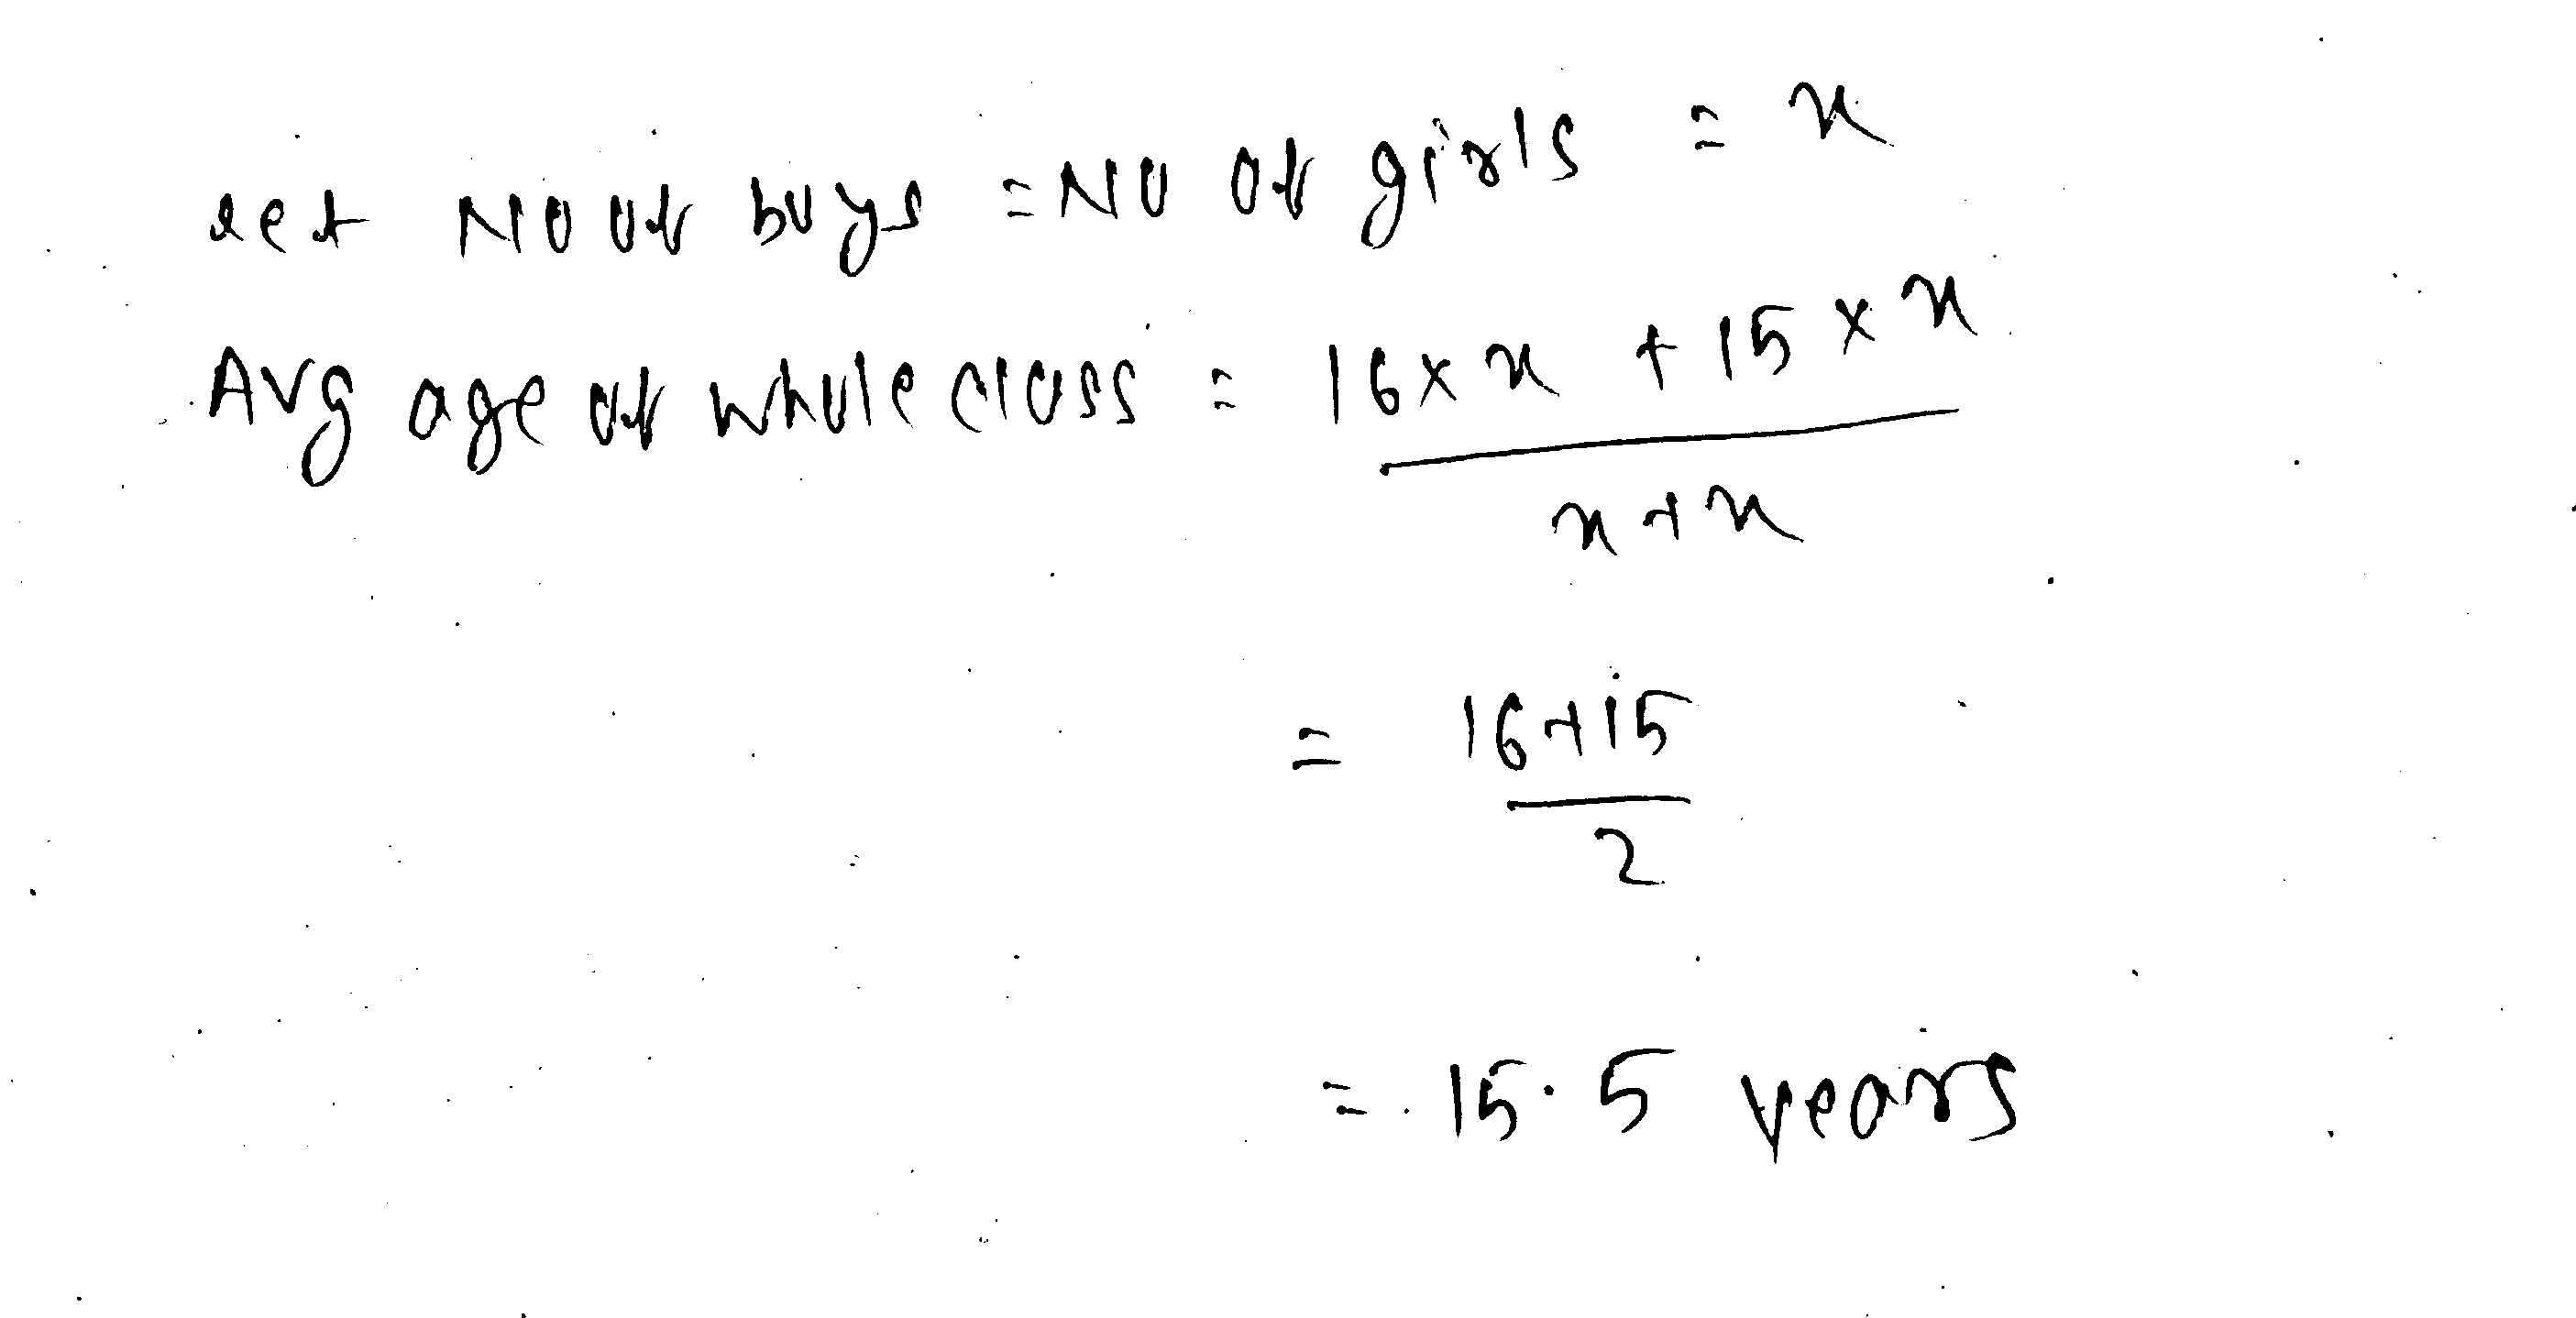 let No of boys = No of girls = x
Avg age of whole class = 16 × x + 15 × x
x + x
= 16 + 15
2
= 15.5 years